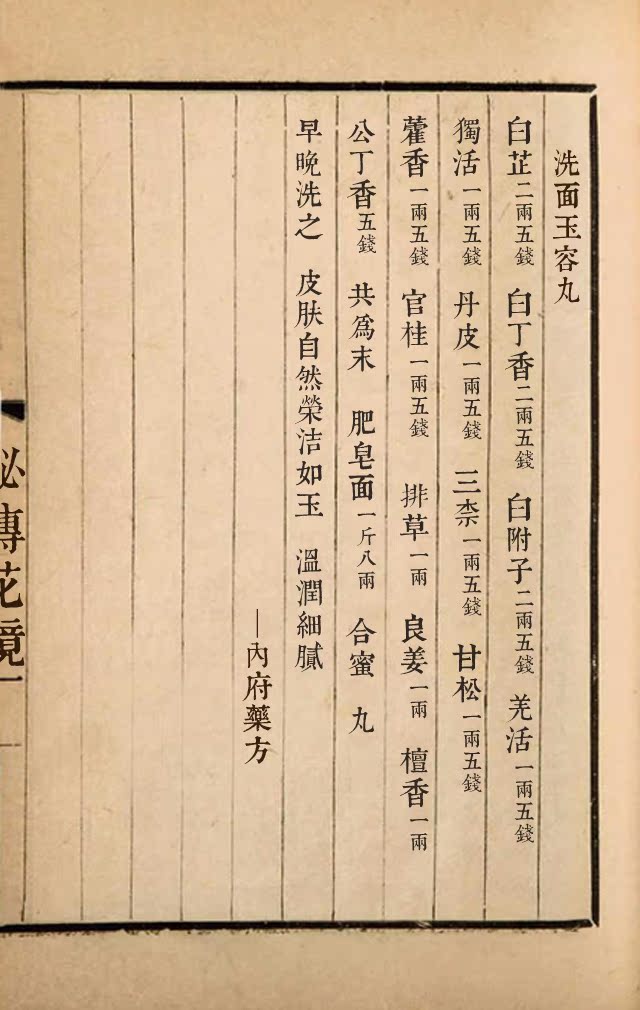 洗面玉容丸
白芷二兩五錢 白丁香二兩五錢 白附子二兩五錢 羌活一兩五錢
獨活一兩五錢 丹皮一兩五錢 三柰一兩五錢 甘松一兩五錢
藿香一兩五錢 官桂一兩五錢 排草一兩 良姜一兩 檀香一兩
公丁香五錢 共爲末 肥皂面一斤八兩 合蜜 丸
早晚洗之 皮肤自然榮洁如玉 溫潤細膩
—內府藥方
祕傳花鏡